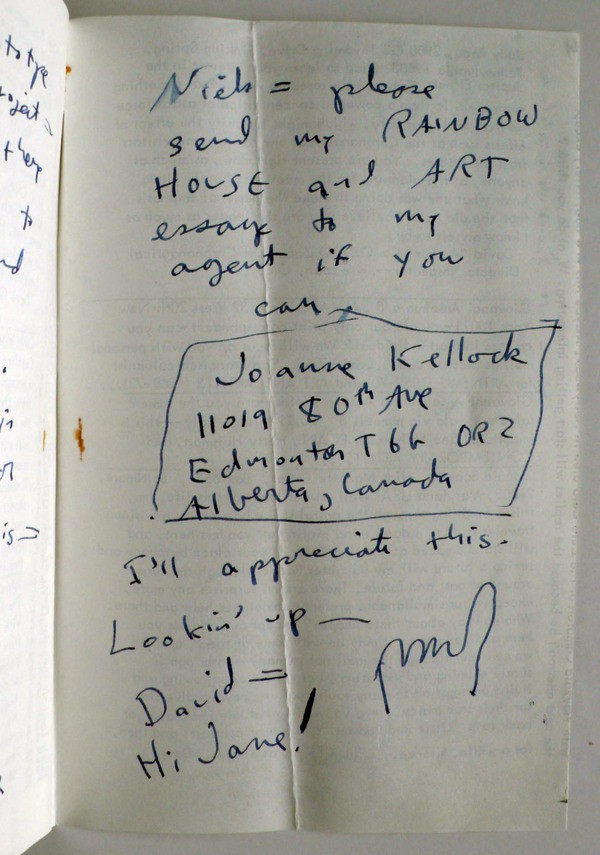 to type
they
to
Nick = please
send my RAINBOW
HOUSE and ART
essay to my
agent if you
can
Joanne Kellock
11019 80th Ave
Edmonton T6G 0R2
Alberta, Canada
I'll appreciate this.
Lookin' up —
David =
Hi Jane!